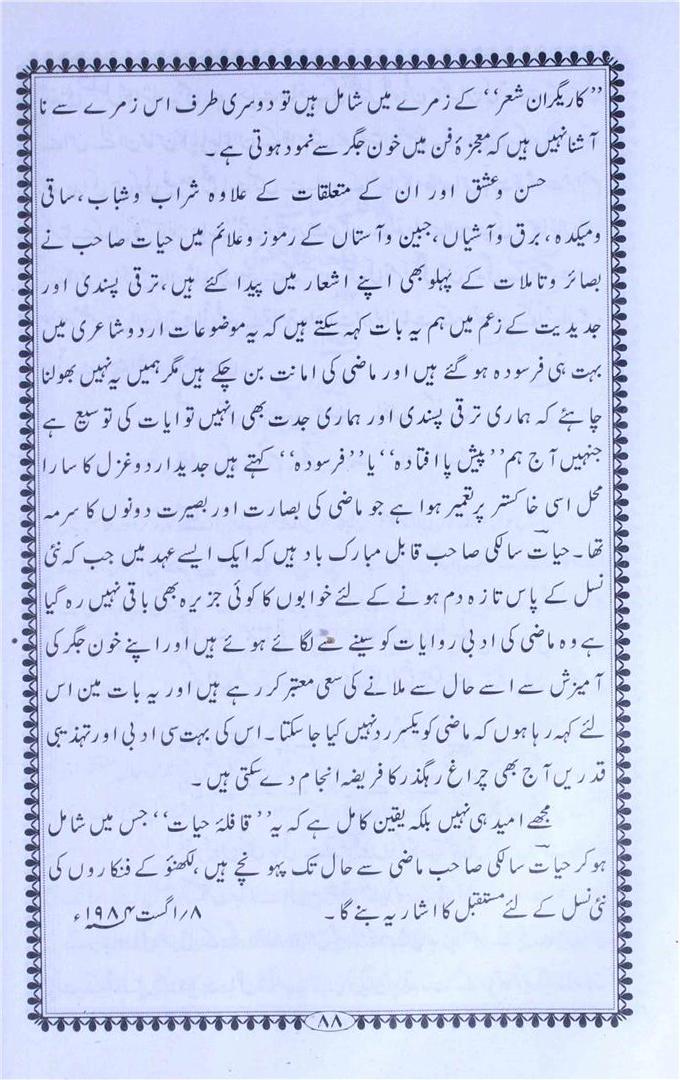 ’’کاریگران شعر‘‘ کے زمرے میں شامل ہیں تو دوسری طرف اس زمرے سے نا
آشنا نہیں ہیں کہ معجزۂ فن میں خون جگر سے نمود ہوتی ہے۔
حسن وعشق اور ان کے متعلقات کے علاوہ شراب وشباب، ساقی
ومیکدہ، برق وآشیاں، جبین وآستاں کے رموز وعلائم میں حیات صاحب نے
بصائر وتاملات کے پہلو بھی اپنے اشعار میں پیدا کئے ہیں، ترقی پسندی اور
جدیدیت کے زعم میں ہم یہ بات کہہ سکتے ہیں کہ یہ موضوعات اردو شاعری میں
بہت ہی فرسودہ ہوگئے ہیں اور ماضی کی امانت بن چکے ہیں مگر ہمیں یہ نہیں بھولنا
چاہئے کہ ہماری ترقی پسندی اور ہماری جدت بھی انہیں توایات کی توسیع ہے
جنہیں آج ہم ’’پیش پا افتادہ‘‘ یا ’’فرسودہ‘‘ کہتے ہیں جدید اردو غزل کا سارا
محل اسی خاکستر پر تعمیر ہوا ہے جو ماضی کی بصارت اور بصیرت دونوں کا سرمہ
تھا۔ حیاتؔ سالکی صاحب قابل مبارک باد ہیں کہ ایک ایسے عہد میں جب کہ نئی
نسل کے پاس تازہ دم ہونے کے لئے خوابوں کا کوئی جزیرہ بھی باقی نہیں رہ گیا
ہے وہ ماضی کی ادبی روایات کو سینے سے لگائے ہوئے ہیں اور اپنے خون جگر کی
آمیزش سے اسے حال سے ملانے کی سعی معتبر کررہے ہیں اور یہ بات مین اس
لئے کہہ رہا ہوں کہ ماضی کو یکسر رد نہیں کیا جاسکتا۔ اس کی بہت سی ادبی اور تہذیبی
قدریں آج بھی چراغ رہگذر کا فریضہ انجام دے سکتی ہیں۔
مجھے امید ہی نہیں بلکہ یقین کامل ہے کہ یہ ’’قافلۂ حیات‘‘ جس میں شامل
ہوکر حیاتؔ سالکی صاحب ماضی سے حال تک پہونچے ہیں، لکھنؤ کے فنکاروں کی
نئی نسل کے لئے مستقبل کا اشاریہ بنے گا۔ ۸؍اگست ۱۹۸۴ء
۸۸